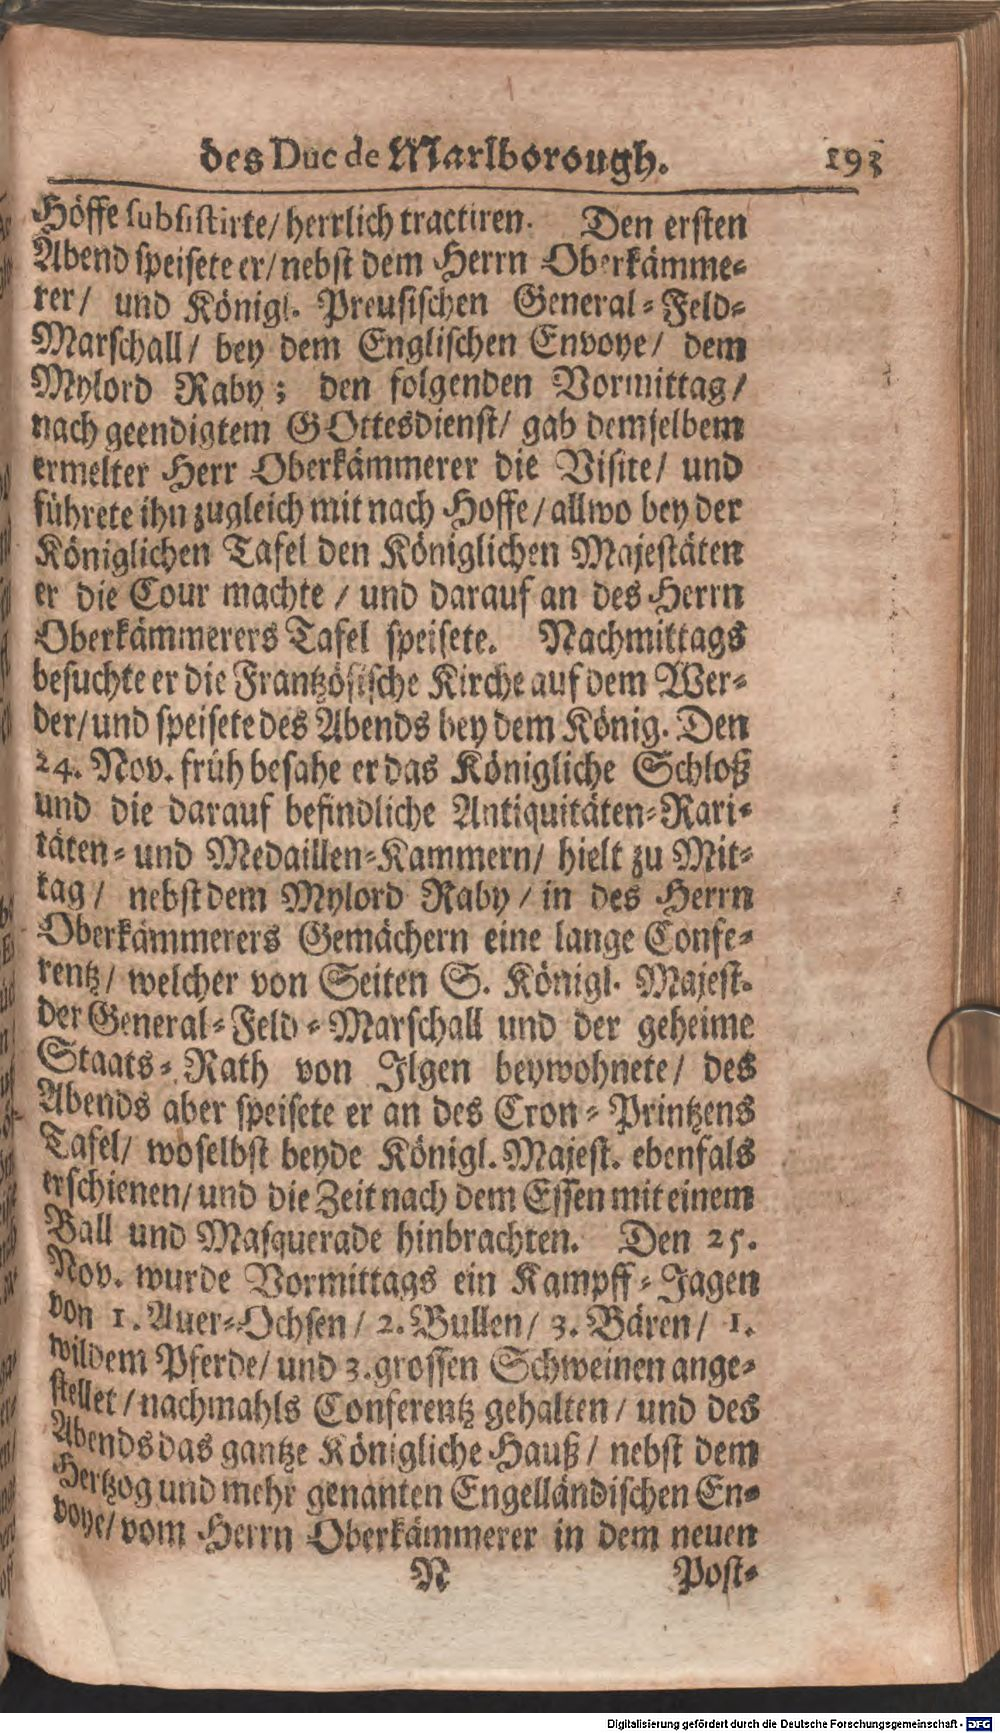 des Duc de Marlborough. 193
Höffe subsistirte/ herrlich tractiren. Den ersten
Abend speisete er/ nebst dem Herrn Oberkämme-
rer/ und Königl. Preusischen General-Feld-
Marschall/ bey dem Englischen Envoye/ dem
Mylord Raby; den folgenden Vormittag/
nach geendigtem GOttesdienst/ gab demselbem
ermelter Herr Oberkämmerer die Visite/ und
führete ihn zugleich mit nach Hoffe/ allwo bey der
Königlichen Tafel den Königlichen Majestäten
er die Cour machte/ und darauf an des Herrn
Oberkämmerers Tafel speisete. Nachmittags
besuchte er die Frantzösische Kirche auf dem Wer-
der/ und speisete des Abends bey dem König. Den
24. Nov. früh besahe er das Königliche Schloß
und die darauf befindliche Antiquitäten-Rari-
täten- und Medaillen-Kammern/ hielt zu Mit-
tag/ nebst dem Mylord Raby/ in des Herrn
Oberkämmerers Gemächern eine lange Confe-
rentz/ welcher von Seiten S. Königl. Majest.
der General-Feld-Marschall und der geheime
Staats-Rath von Ilgen beywohnete/ des
Abends aber speisete er an des Cron-Printzens
Tafel/ woselbst beyde Königl. Majest. ebenfals
erschienen/ und die Zeit nach dem Essen mit einem
Ball und Masquerade hinbrachten. Den 25.
Nov. wurde Vormittags ein Kampff-Jagen
von 1. Auer-Ochsen/ 2. Bullen/ 3. Bären/ 1.
wildem Pferde/ und 3. grossen Schweinen ange-
stellet/ nachmahls Conferentz gehalten/ und des
Abends das gantze Königliche Hauß/ nebst dem
Hertzog und mehr genanten Engelländischen En-
voye/ vom Herrn Oberkämmerer in dem neuen
N Post-
Digitalisierung gefördert durch die Deutsche Forschungsgemeinschaft - DFG